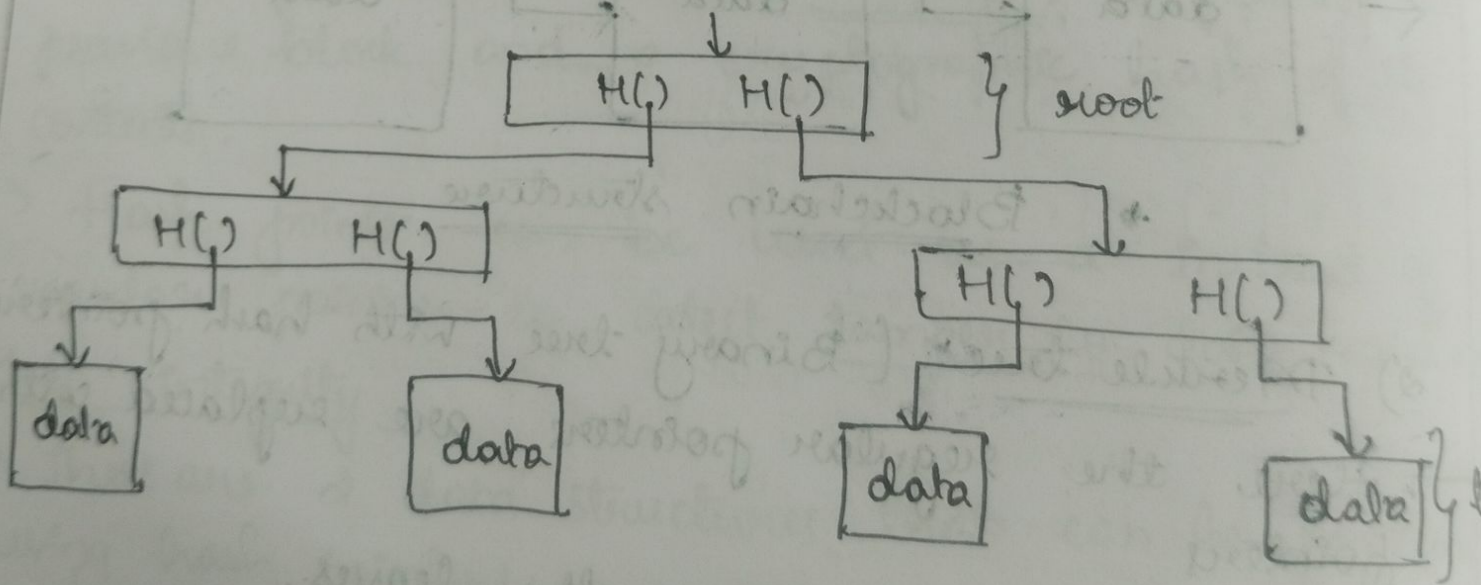 H() H() } root
H() H()
H() H()
data
data
data
data }